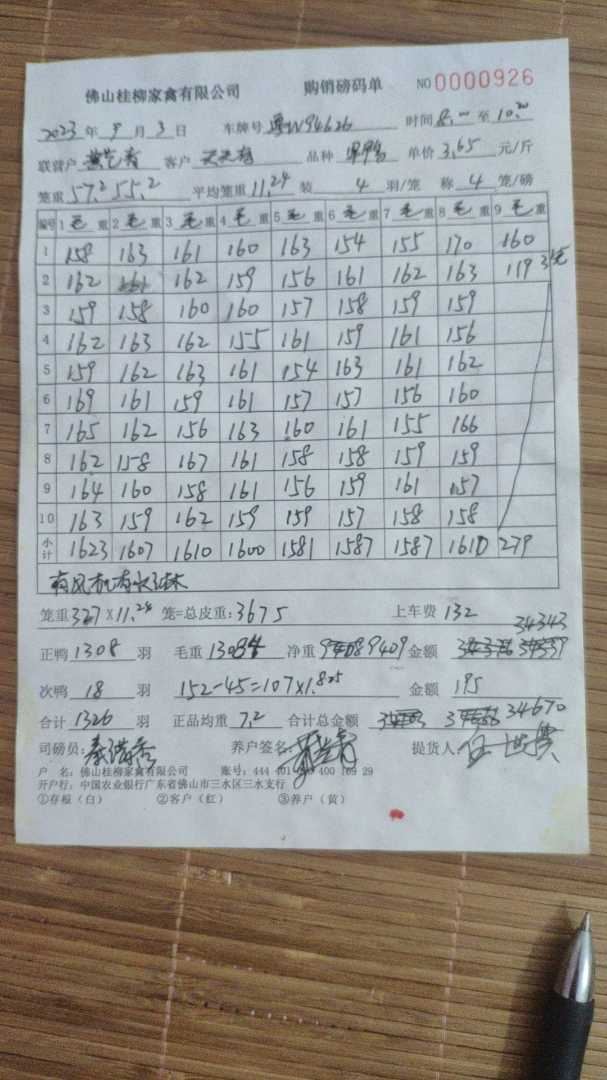 佛山桂柳家禽有限公司 购销磅码单 NO 0000926
2023年9月3日 车牌号 粤W94626 时间 8:00 至 10:20
联营户 客户 天天有 品种 单价 3.65 元/斤
笼重 57.2 55.2 平均笼重 11.24 装 4 羽/笼 称 4 笼/磅
编号 1 毛 重 2 毛 重 3 毛 重 4 毛 重 5 毛 重 6 毛 重 7 毛 重 8 毛 重 9 毛 重
1 158 163 161 160 163 154 155 170 160
2 162 161 162 159 156 161 162 163 119 3笼
3 159 158 160 160 157 158 159 159
4 162 163 162 155 161 159 161 156
5 159 162 163 161 154 163 161 162
6 169 161 159 161 157 157 156 160
7 165 162 156 163 160 161 155 166
8 162 158 167 161 158 158 159 159
9 164 160 158 161 156 159 161 157
10 163 159 162 159 159 157 158 158
小计 1623 1607 1610 1600 1581 1587 1587 1610 279
笼重 327×11.24 笼=总皮重: 3675 上车费 132
34343
正鸭 1308 羽 毛重 13084 净重 9409 金额
次鸭 18 羽 152-45=107×1.825 金额 195
合计 1326 羽 正品均重 7.2 合计总金额 34670
司磅员: 养户签名 提货人
户 名: 佛山桂柳家禽有限公司 账号: 444 401 400 169 29
开户行: 中国农业银行广东省佛山市三水区三水支行
①存根(白) ②客户(红) ③养户(黄)